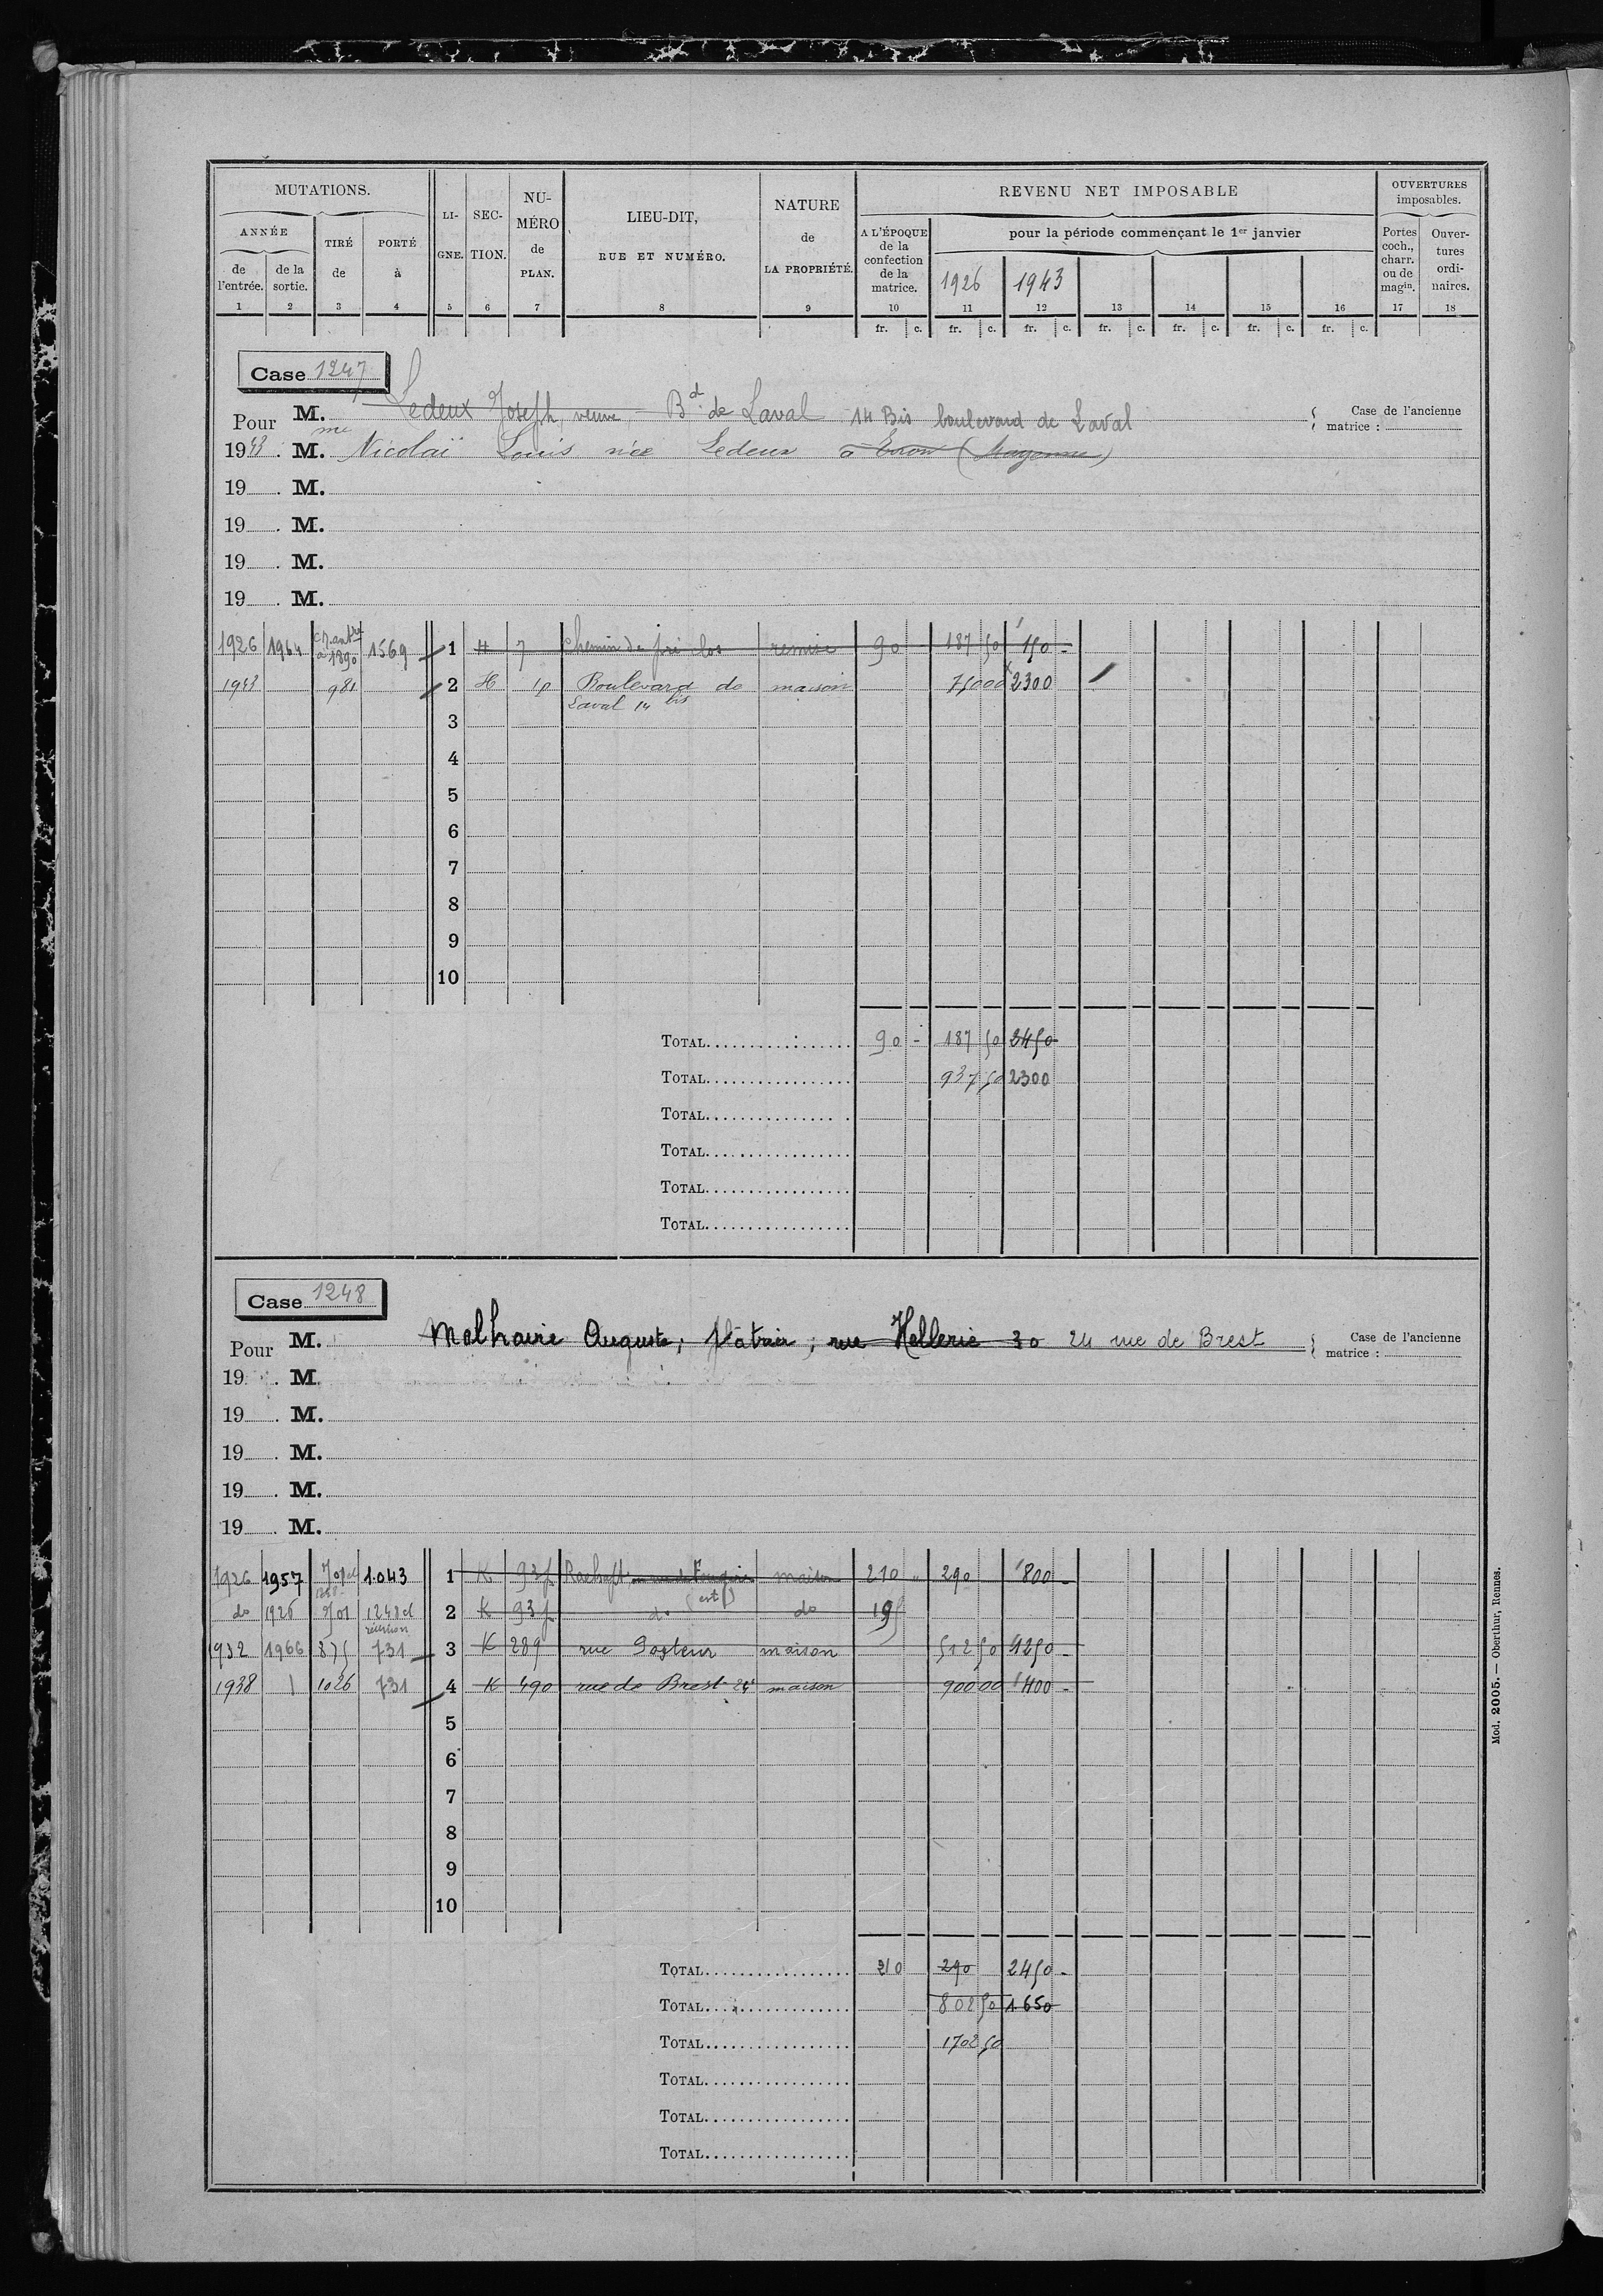 MUTATIONS.
ANNÉE
de l'entrée. de la sortie. TIRÉ de PORTÉ à LI-GNE. SEC-TION. NU-MÉRO de PLAN. LIEU-DIT, RUE ET NUMÉRO. NATURE de LA PROPRIÉTÉ.
REVENU NET IMPOSABLE
A L'ÉPOQUE de la confection de la matrice. pour la période commençant le 1er janvier
1926 1943
OUVERTURES imposables.
Portes coch., charr. ou de magin. Ouver-tures ordi-naires.
1 2 3 4 5 6 7 8 9 10 11 12 13 14 15 16 17 18
fr. c. fr. c. fr. c. fr. c. fr. c. fr. c. fr. c.
Case 1247
Pour M. Ledeux Joseph, veuve, Bd de Laval 14 Bis boulevard de Laval Case de l'ancienne matrice :
1943. Mme Nicolaï Louis née Ledeux à (Mayenne)
19 . M.
19 . M.
19 . M.
19 . M.
1926 1964 1390 1569 1 H 7 Chemin du pré clos remise 90 187 50 150 -
1943 981 2 H 10 Boulevard de Laval 14 bis maison 750 00 2300
3
4
5
6
7
8
9
10
TOTAL 90 - 187 50 2450
TOTAL 937 50 2300
TOTAL
TOTAL
TOTAL
TOTAL
Case 1248
Pour M. Malhaire Auguste, Plâtrier, rue Hellerie 30 24 rue de Brest Case de l'ancienne matrice :
19 . M
19 . M.
19 . M.
19 . M.
19 . M.
1926 1957 1043 1 K 93p maison 210 " 290 800 -
do 1926 701 1248 et 2 K 93p do do 195
1932 1966 875 731 3 K 289 rue Pasteur maison 512 50 1250 -
1938 1026 731 4 K 490 rue de Brest 24 maison 900 00 400 -
5
6
7
8
9
10
TOTAL 210 290 2450 -
TOTAL 802 50 1650
TOTAL 1702 50
TOTAL
TOTAL
TOTAL
Mod. 2005. — Oberthur, Rennes.